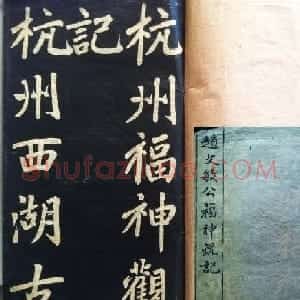 杭州福神觀
記
杭州西湖古
趙文敏公福神觀記
Shufazidian.com